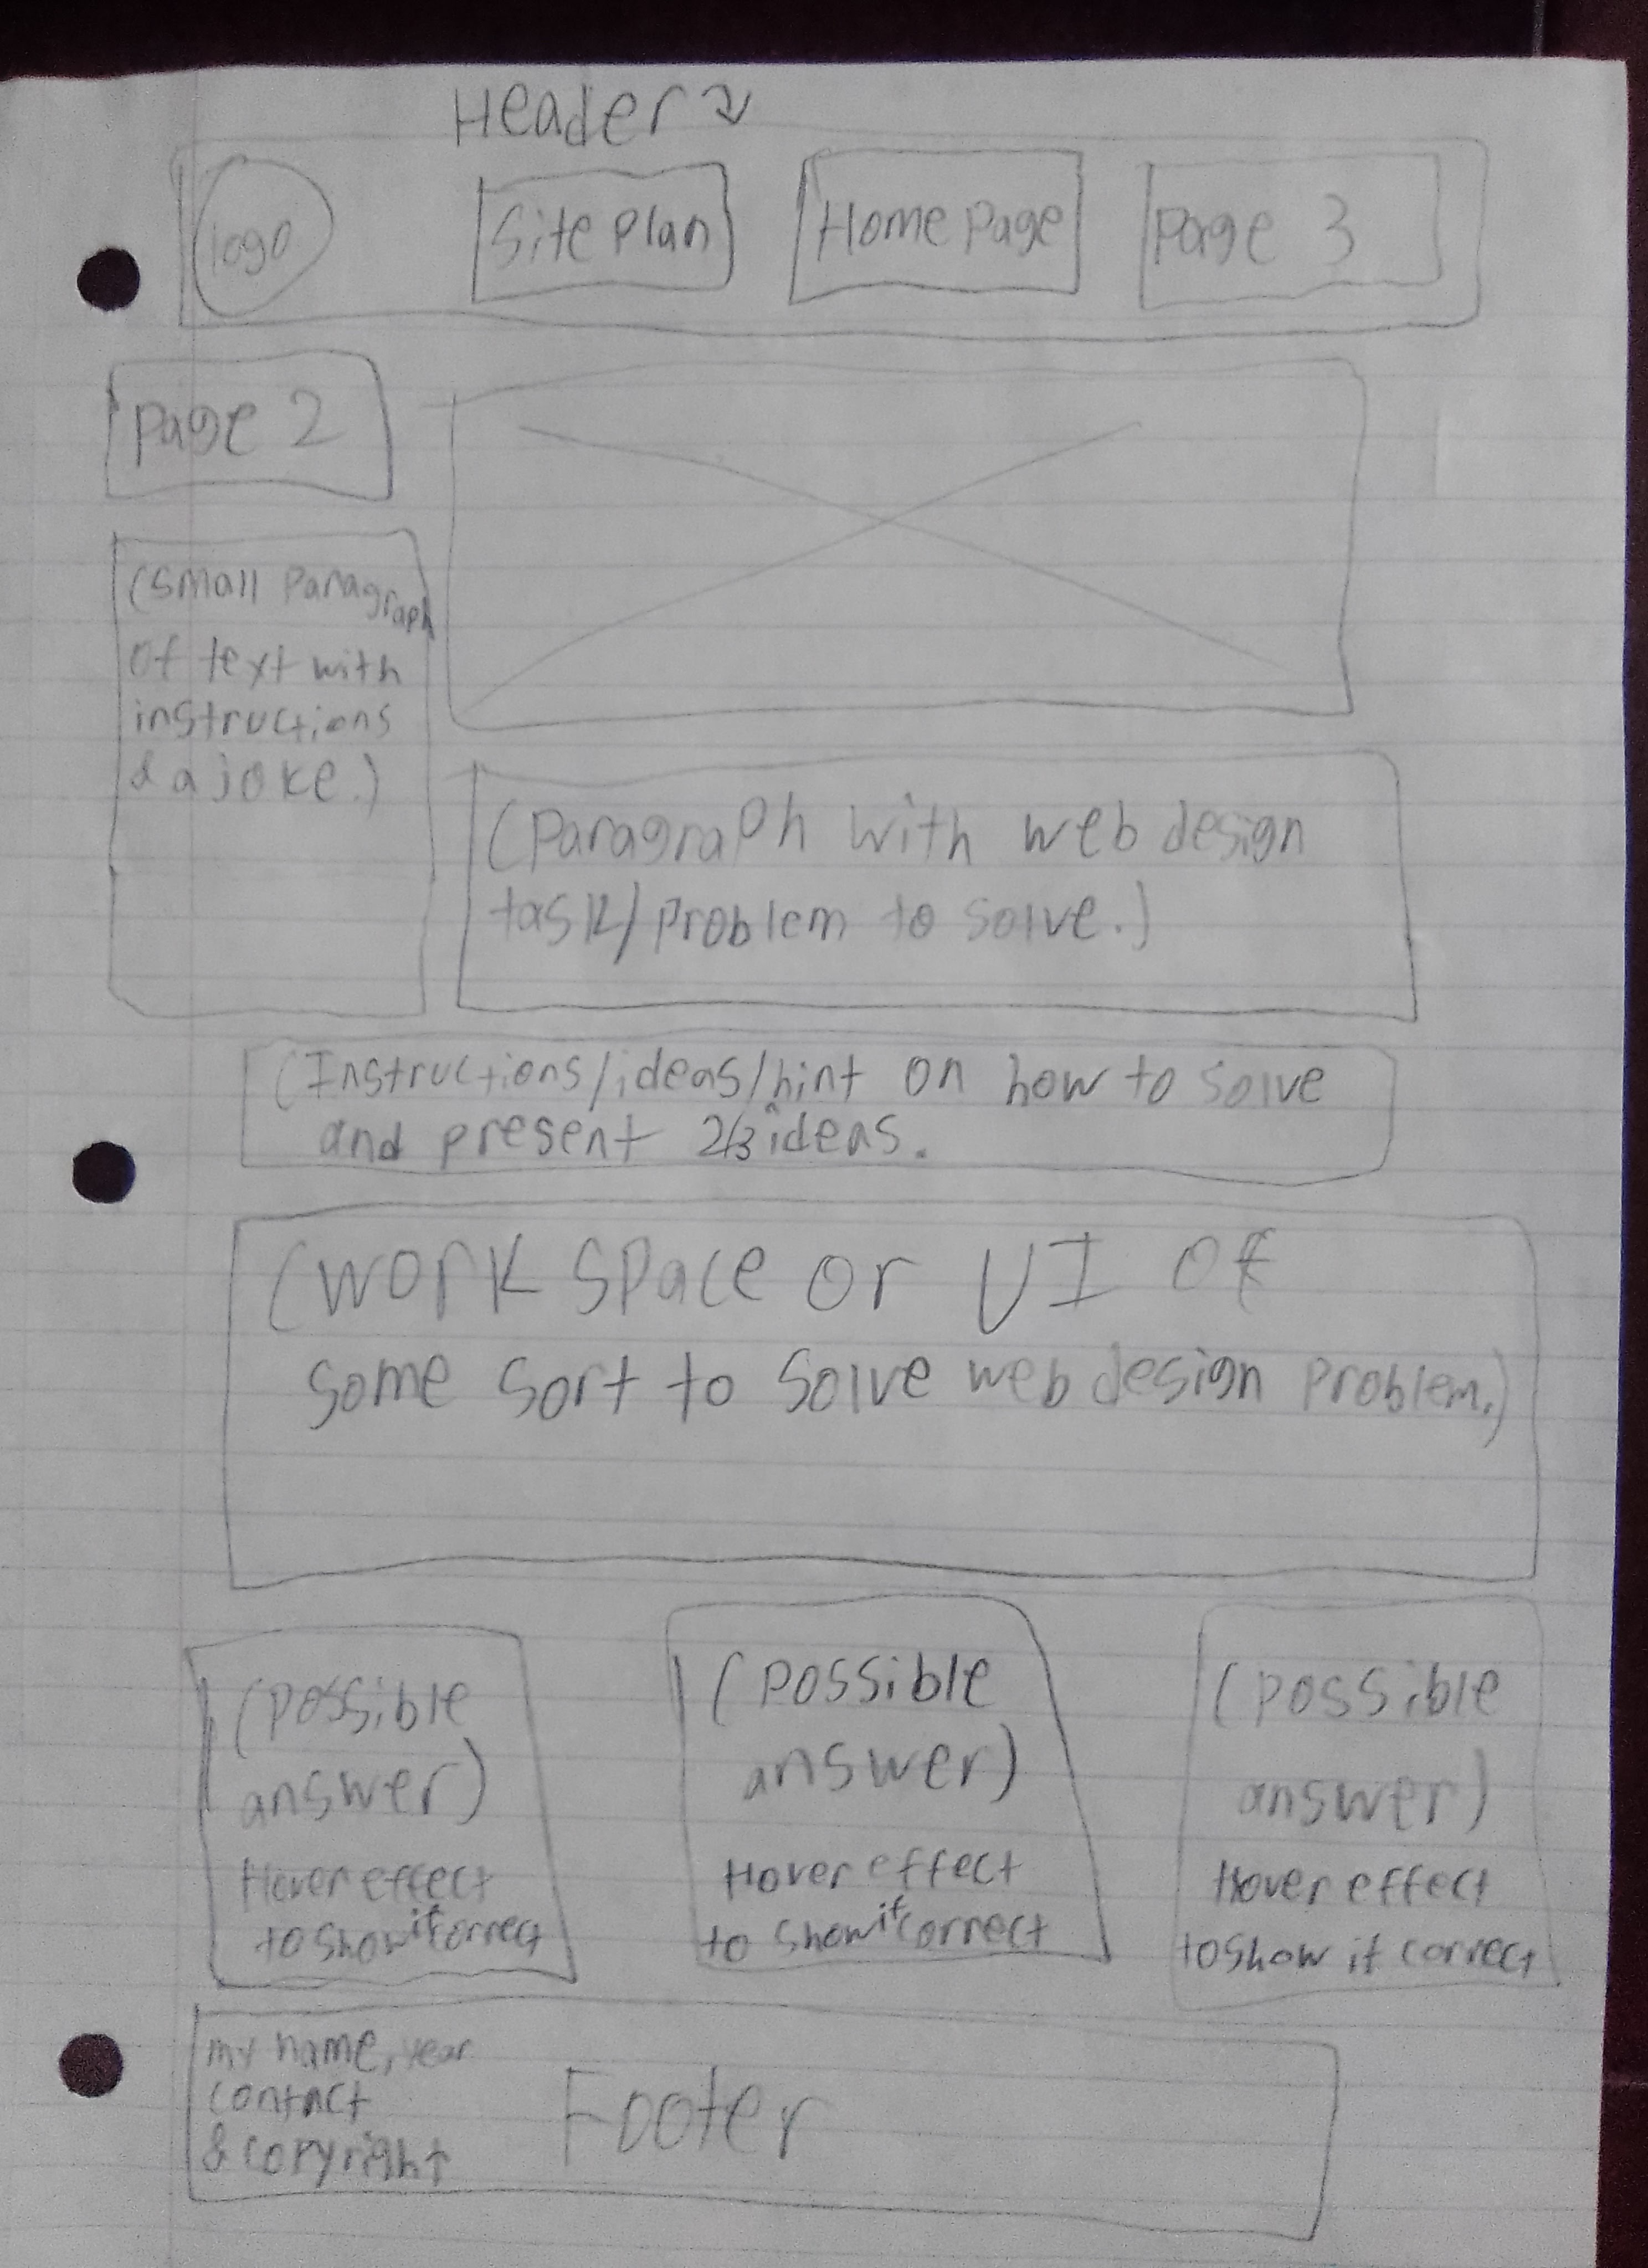 Header
logo
Site Plan
Home Page
Page 3
Page 2
(small Paragraph
of text with
instructions
& a joke.)
(Paragraph with web design
task/problem to solve.)
(Instructions/ideas/hint on how to solve
and present 2/3 ideas.
(work space or UI of
some sort to solve web design problem.)
(possible
answer)
Hover effect
to show if correct
(possible
answer)
Hover effect
to show if correct
(possible
answer)
Hover effect
to show if correct
my name, year
contact
& copyright
Footer